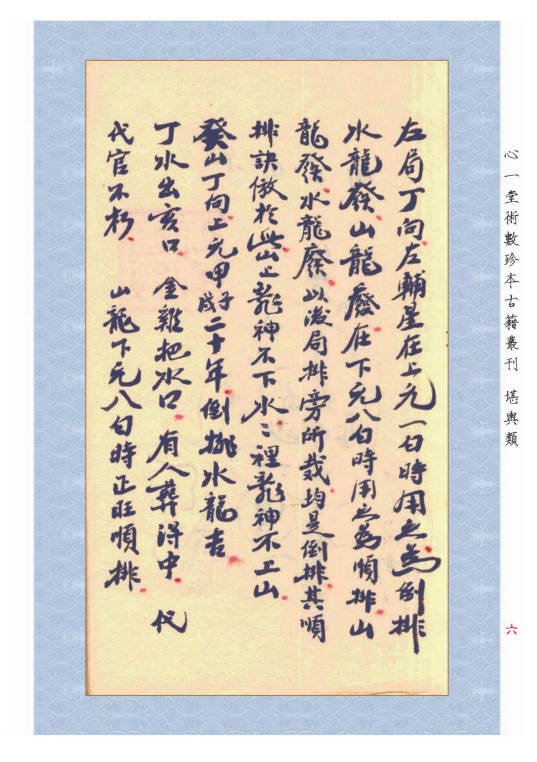 左局丁向左輔星在上元一白時用之為倒排
水龍發山龍廢在下元八白時用之為順排山
龍發水龍廢以後局排旁所栽均是倒排其順
排訣倣於此山上龍神不下水水裡龍神不上山
癸山丁向上元甲子戌二十年倒排水龍吉
丁水出亥口 金雞把水口 有人葬得中 代
代官不朽 山龍下元八白時正旺順排
心一堂術數珍本古籍叢刊 堪輿類
六